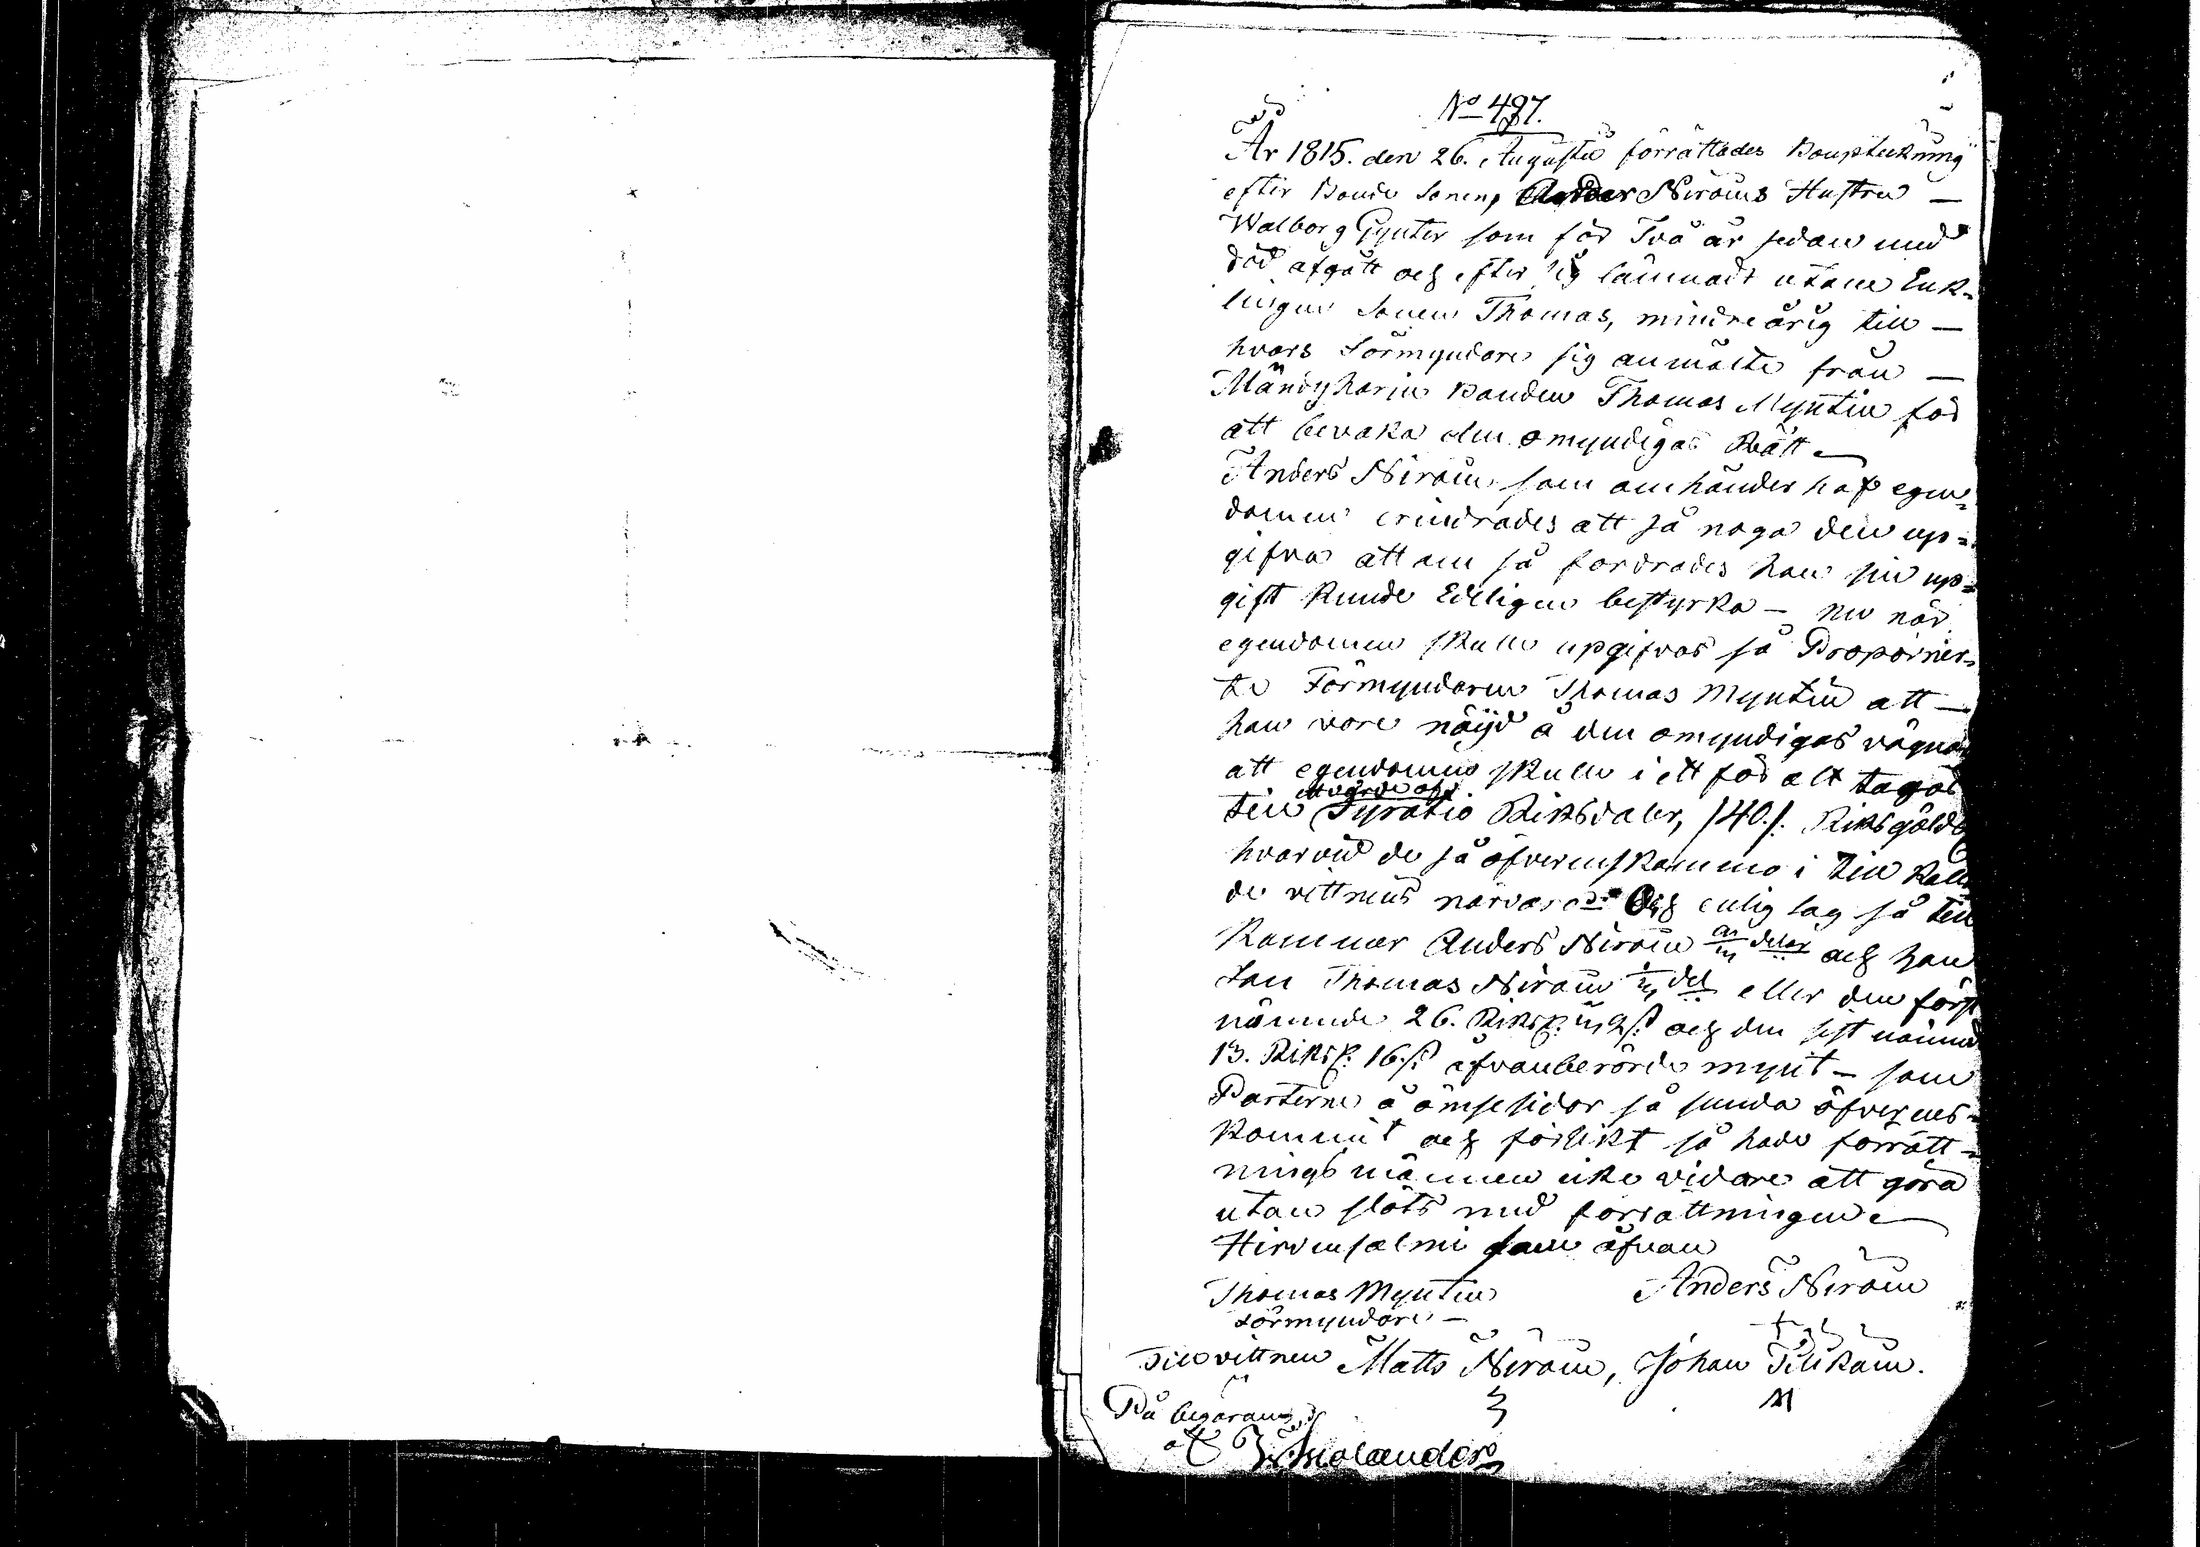 No 497.
År 1815. den 26. Augusti förrättades Bouptekning
efter Bonde Sonens Anders Niröins Hustru —
Walborg Gynter som för Två år sedan med
död afgått och efter sig lämnadt utom Enk=
lingen Sonen Thomas, mindreårig till —
hvars Förmyndare sig anmälte från —
Mändyharju Bonden Thomas Myntin för
att bevaka den omyndigas Rätt
Anders Niröin som omhänder haft egen=
domen erindrades att så noga den up=
gifva att om så fordrades han sin up=
gift kunde Edeligen bestyrka — nu när
egendomen skulle upgifvas så Proponer=
te Förmyndaren Thomas Myntin att —
han vore nöijd å den omyndigas vägnar
att egendomen skulle i ett för alt tagas
till ett värde af Fyratio Riksdaler, /40./. Riksgälds
hvarvid de så öfverenskommo i till kalla
de vittnens närvaro. Och enlig lag så till
kommer Anders Niröin delar och hans
Son Thomas Niröin del eller den först
nämnde 26. Riksd. och den sist nämnde
13. Riksd. 16 s. ofvanberörde mynt — som
Parterne å ömsesidor så sunda öfverens=
kommit och förlikt så hade förrätt=
ningsmännen icke vidare att göra
utan slöts med förrättningen
Hirvensalmi som ofvan
Thomas Myntin Anders Niröin
Förmyndare —
Till vittnen Matts Niröin, Johan Pilikäin.
På begäran
af Molander